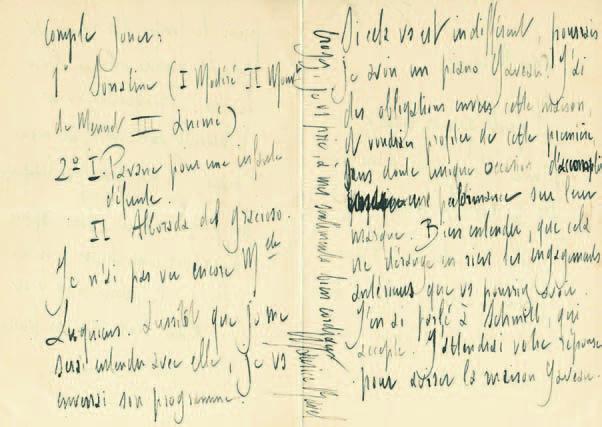 compte jouer:
1º Sonatine (I Modéré II Mouvt
de Menuet III Animé)
2º I. Pavane pour une infante
défunte.
II Alborada del gracioso.
Je n'ai pas vu encore Melle
Luquiens. Aussitôt que je me
serai entendu avec elle, je vs
enverrai son programme.
Si cela vs est indifférent, pourrais
je avoir un piano Gaveau? J'ai
des obligations envers cette maison,
et voudrais profiter de cette première,
sans doute unique occasion d'accomplir
une performance sur leur
marque. Bien entendu, que cela
ne dérange en rien les engagements
antérieurs que vs pourriez avoir.
J'en ai parlé à Schmitt, qui
accepte. J'attendrai votre réponse
pour aviser la maison Gaveau.
Croyez, je vs prie, à mes sentiments bien cordiaux
Maurice Ravel